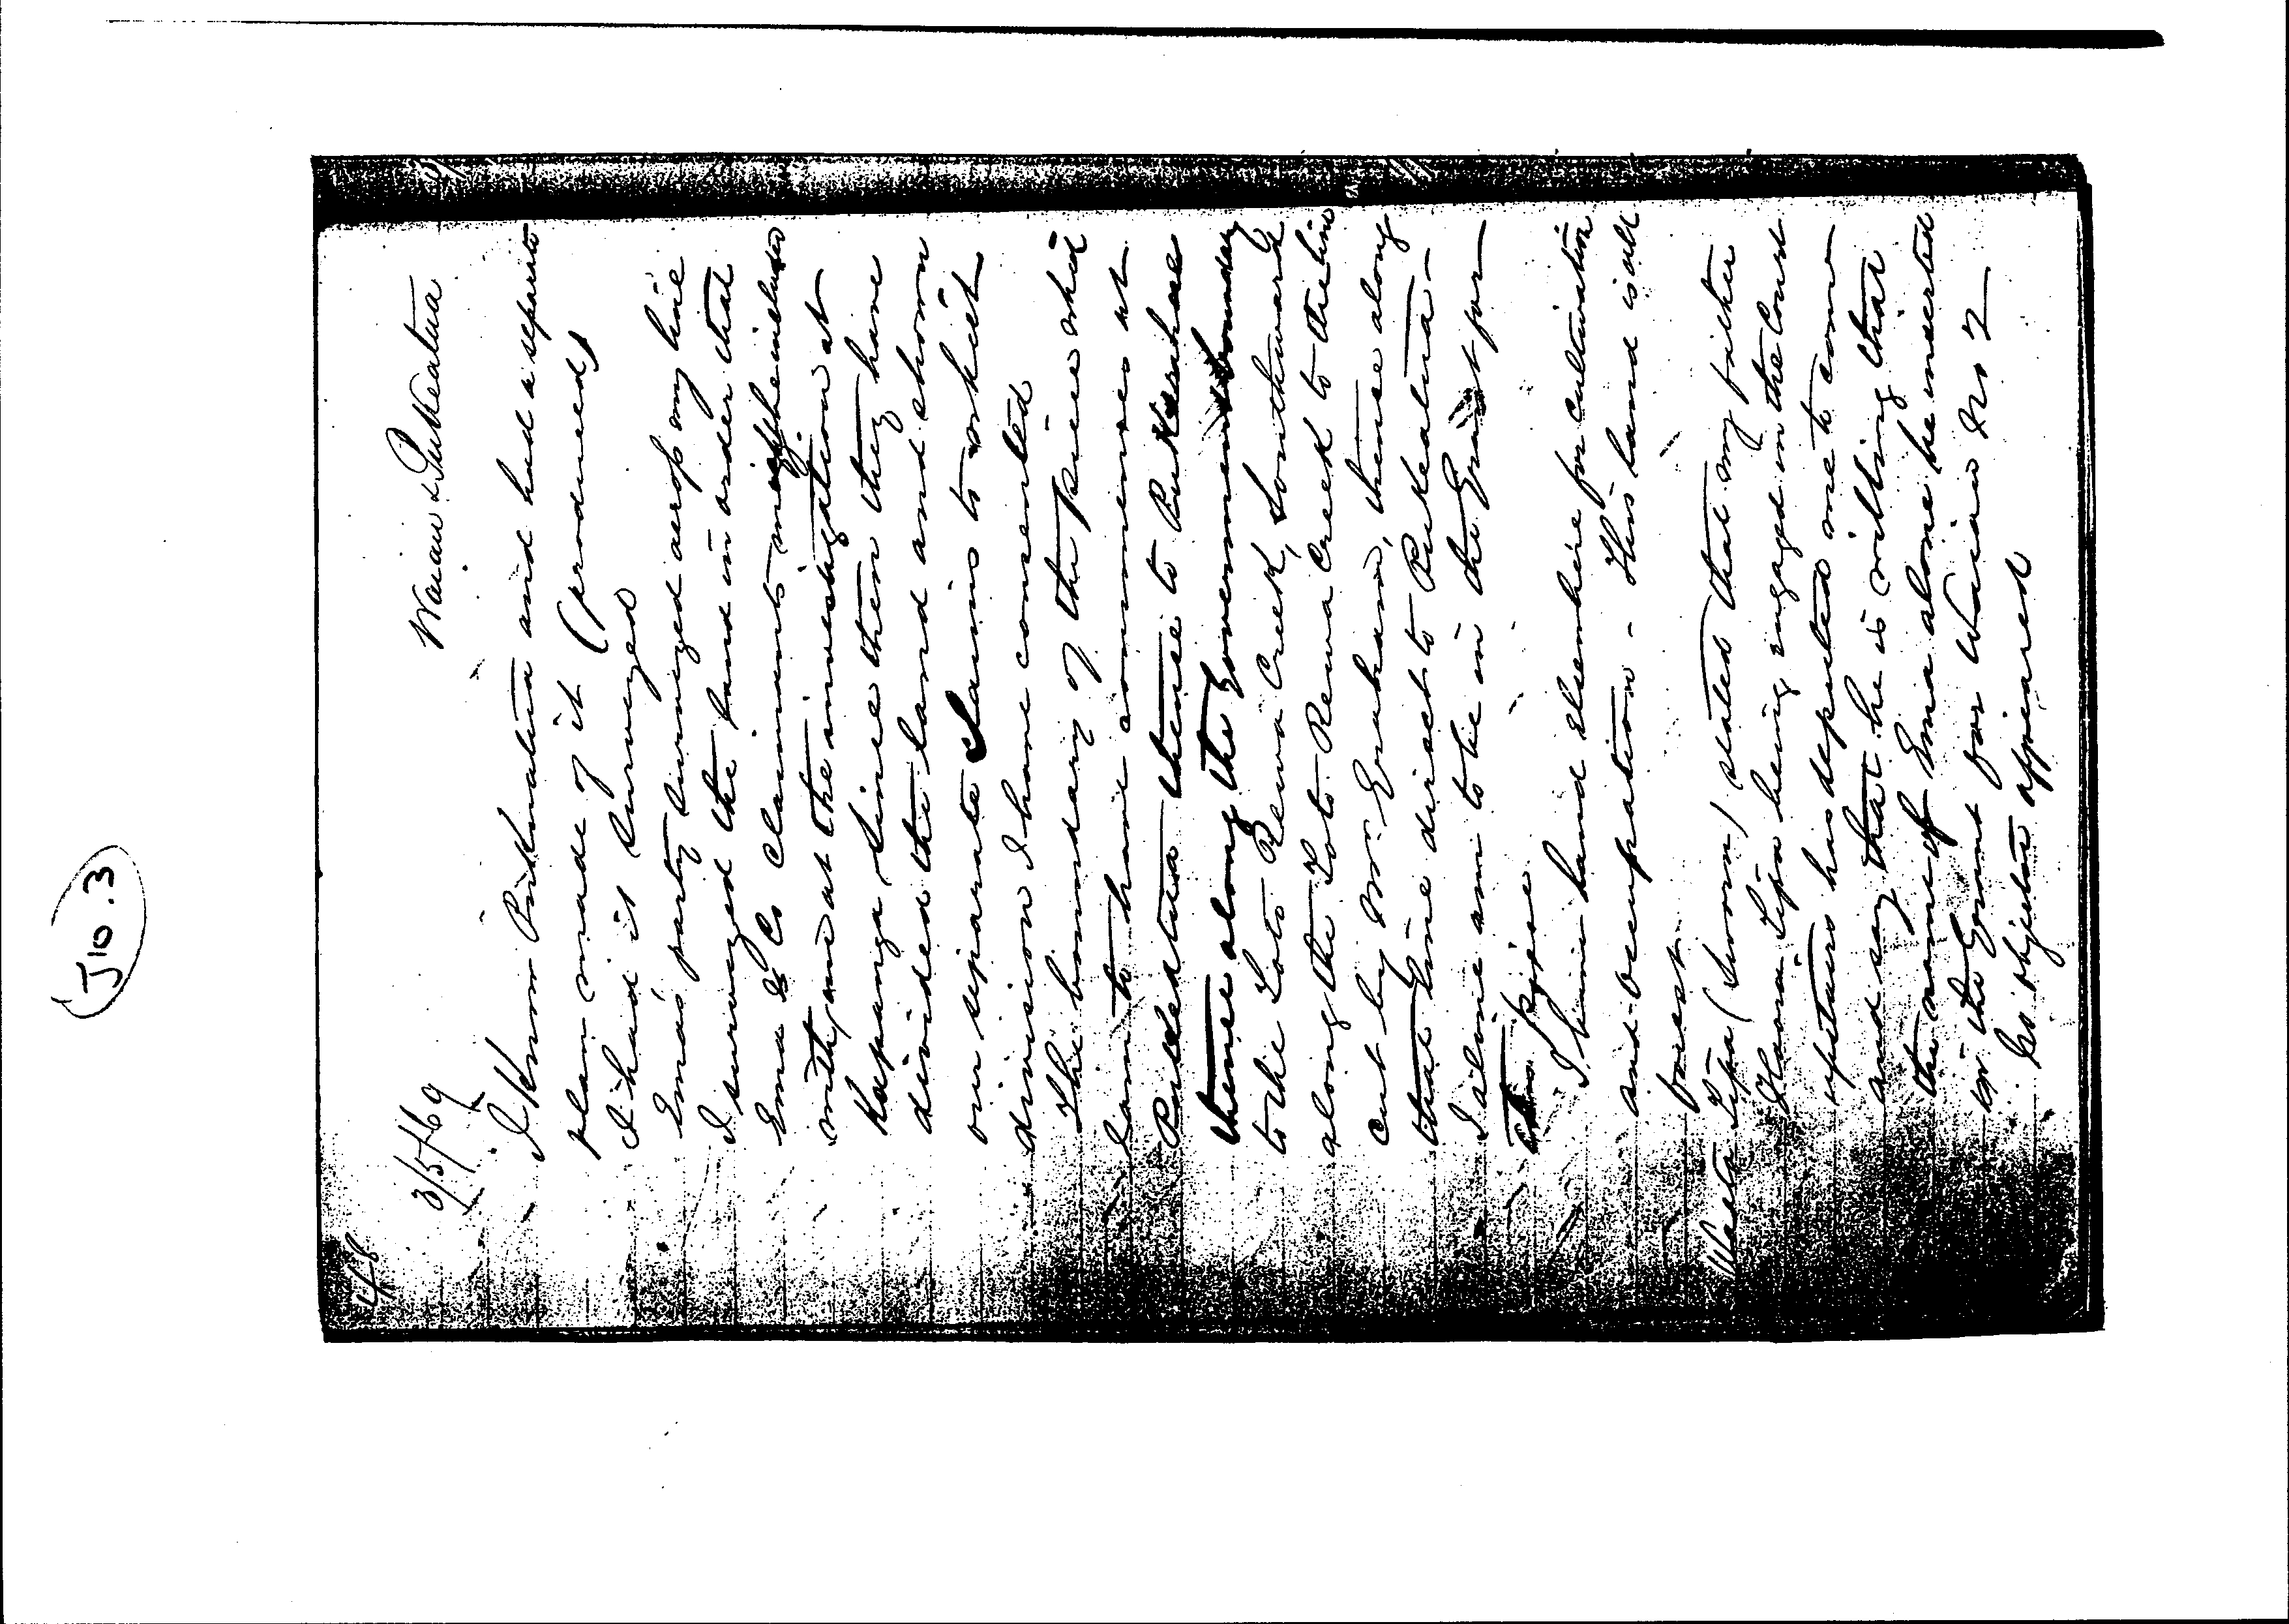 J10.3
48
3/5/69 Waiau & Pukeatua
I know Pukeatua and had a separate
plan made of it (produced)
I had it surveyed
Ema's party surveyed across my line
I surveyed the land in order that
Ema & Co claimants might be included
with me at the investigation at
Kapanga since then they have
divided the land and shown
our separate claims to which
division I have consented
The boundary of the piece which
I am to have commences at
Pukeatua thence to Pukerahae
thence along the Government boundary
to the Loto Rewa Creek, Southward
along the Loto Rewa Creek to the line
cut by Mr. Graham, thence along
that line direct to Pukeatua -
I alone am to be in the Grant for
this piece
I have land elsewhere for cultivation
and occupation - This land is all
forest
Waata Tipa (Sworn) stated that my father
Haora Tipa being engaged in the Court
upstairs has deputed me to come
and say that he is willing that
the name of Ema alone be inserted
in the Grant for Waiau No 2
No objectors appeared